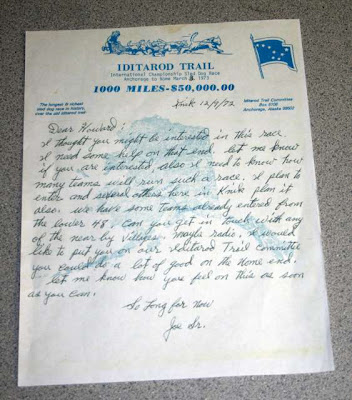 IDITAROD TRAIL
International Championship Sled Dog Race
Anchorage to Nome March 3, 1973
1000 MILES-$50,000.00
The longest & richest
sled dog race in history,
over the old Iditarod trail.
Iditarod Trail Committee
Anchorage, Alaska
Knik 12/9/72
Dear Howard:
I thought you might be interested in this race.
I need some help on that end. let me know
if you are interested, also I need to know how
many teams will run such a race. I plan to
enter and several others here in Knik plan it
also. we have some teams already entered from
the lower 48. Can you get in touch with any
of the near by Villages. maybe radio. I would
like to put you on our Iditarod Trail committee
you could do a lot of good on the Nome end.
let me know how you feel on this as soon
as you can.
So Long for Now
Joe Sr.